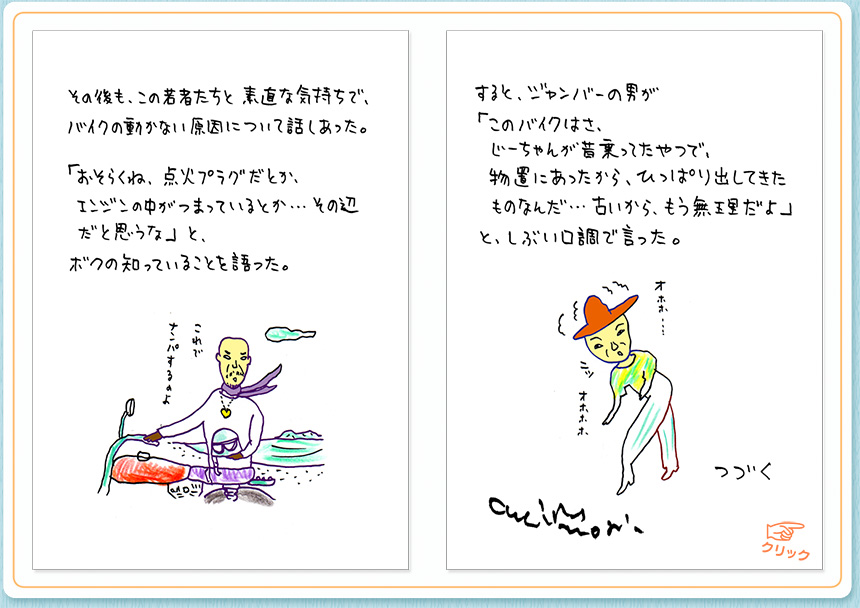 その後も、この若者たちと 素直な気持ちで、
バイクの動かない原因について話しあった。
「おそらくね、点火プラグだとか、
エンジンの中がつまっているとか…その辺
だと思うな」と、
ボクの知っていることを語った。
これで
ナンパするのよ
すると、ジャンパーの男が
「このバイクはさ、
じーちゃんが昔乗ってたやつで、
物置にあったから、ひっぱり出してきた
ものなんだ…古いから、もう無理だよ」
と、しぶい口調で言った。
オホホ……
ニッ
オホホホ
つづく
クリック